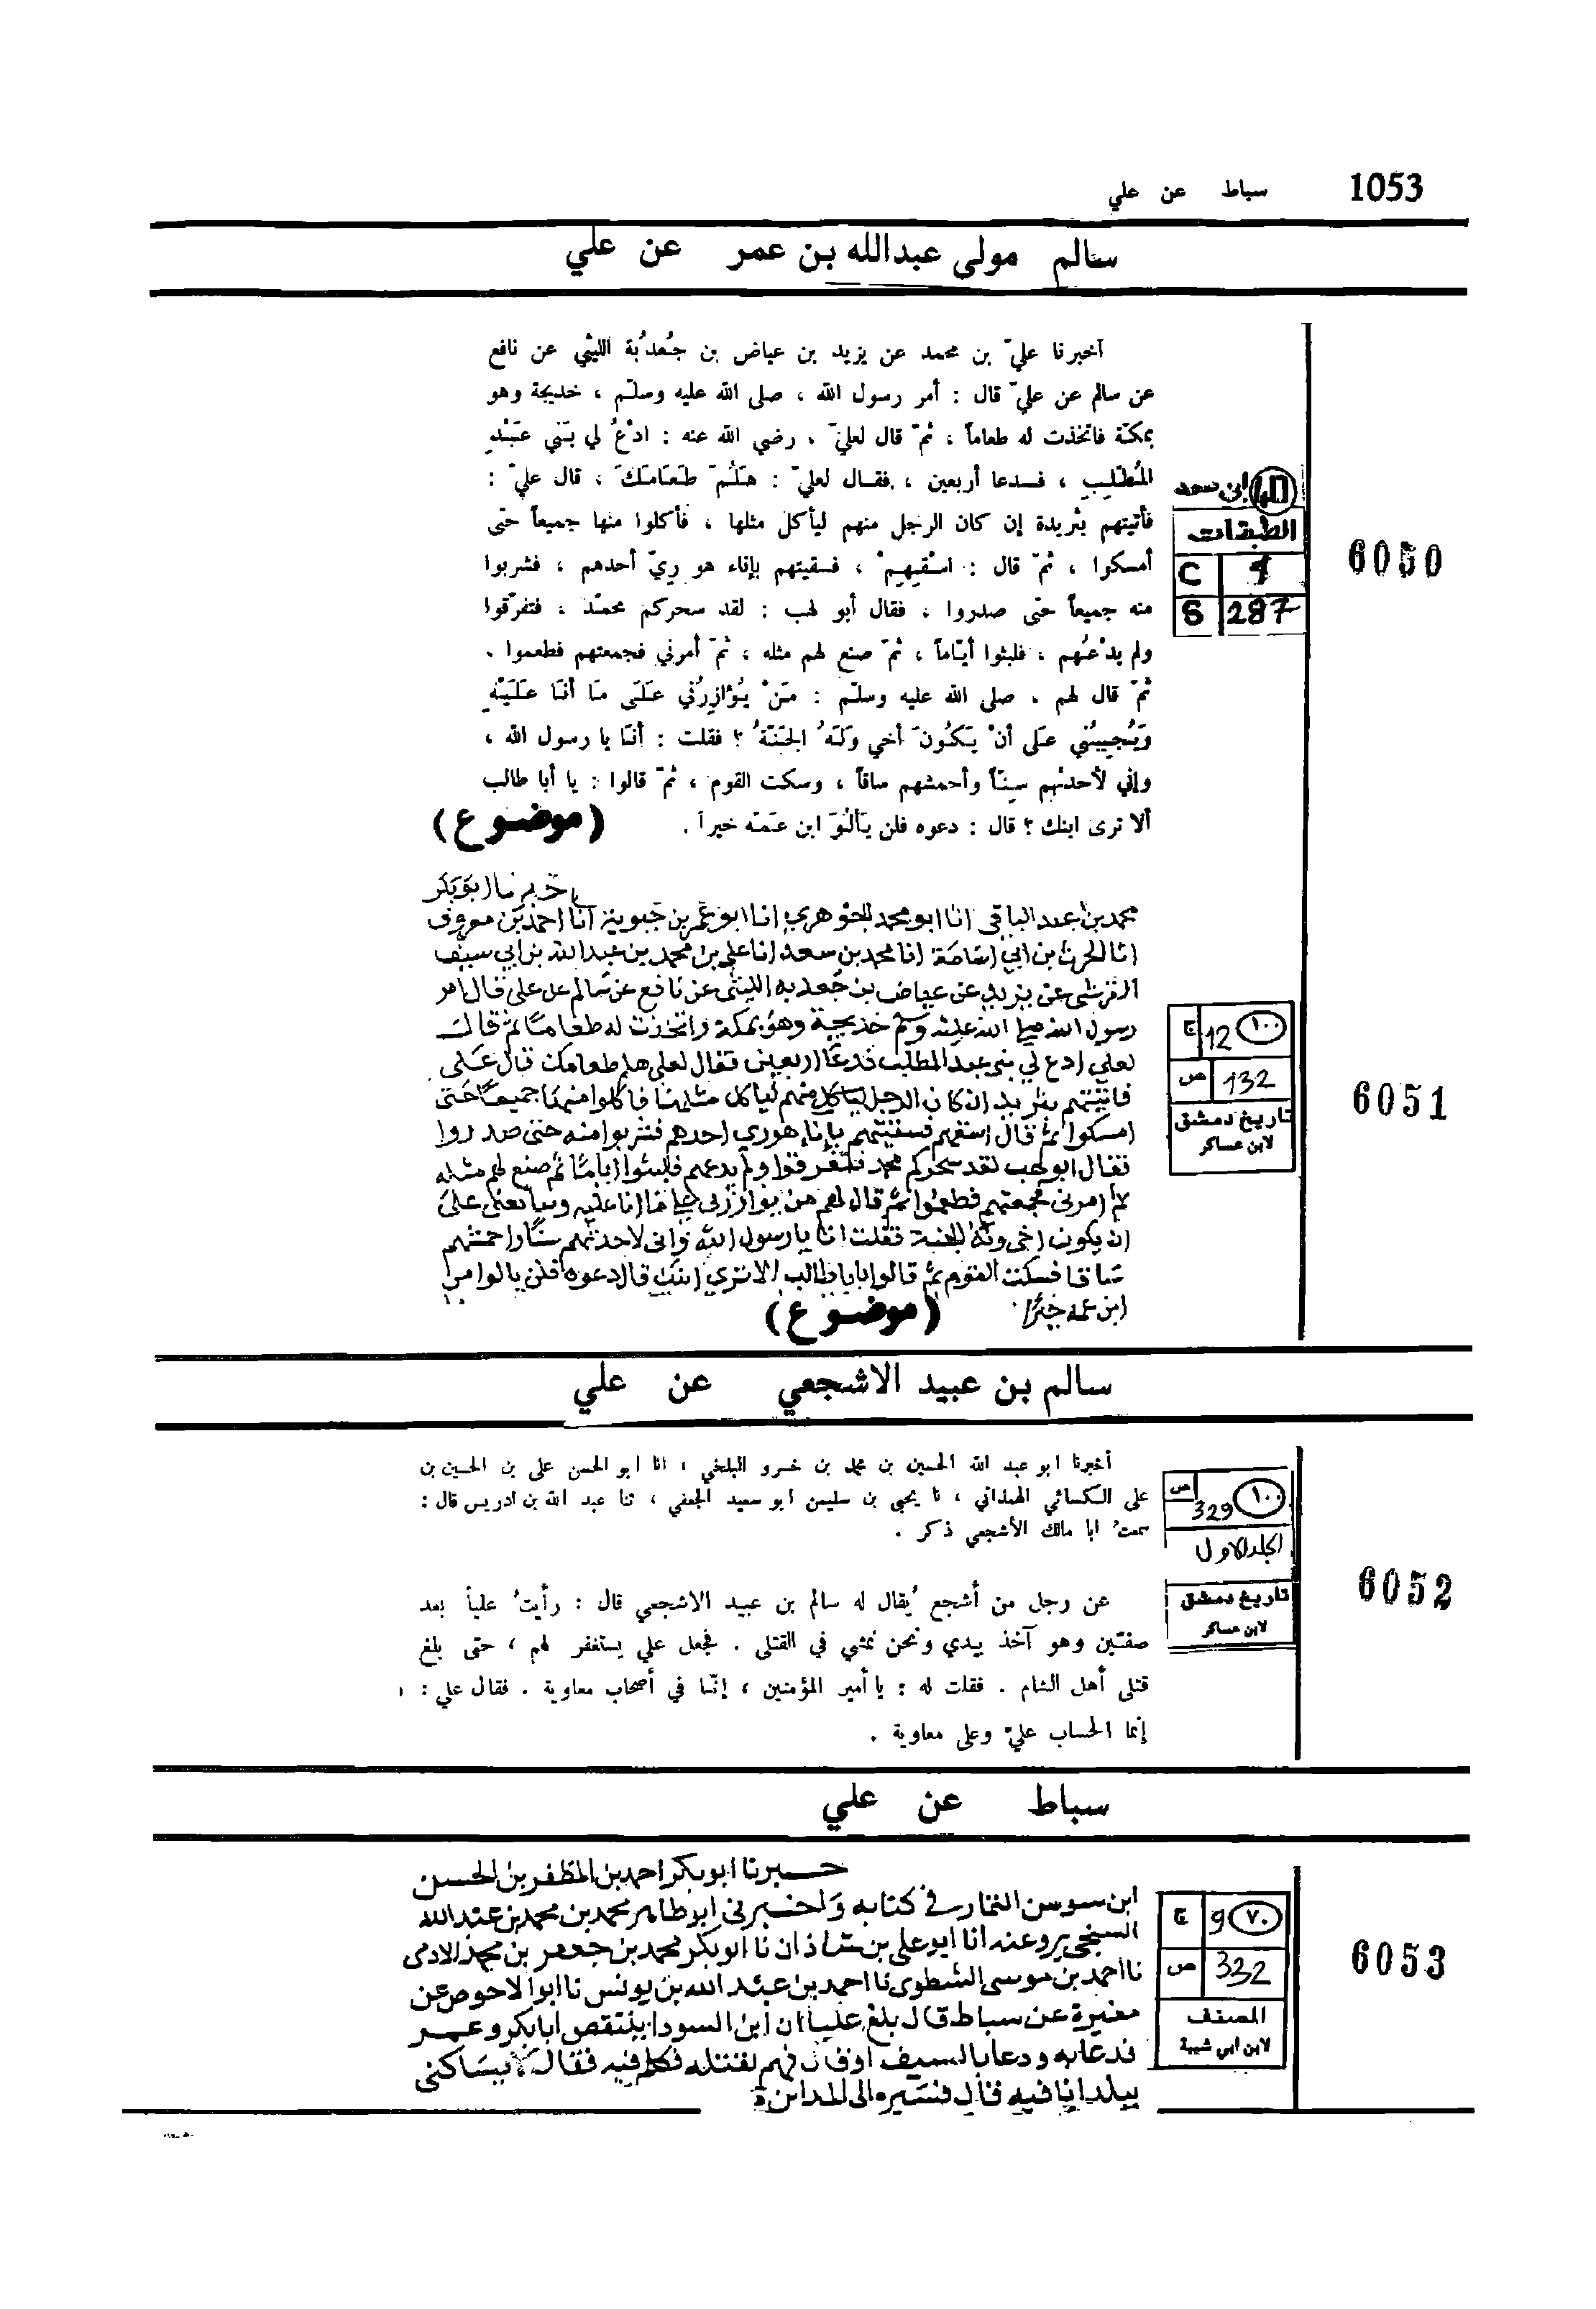 1053 سباط عن علي
سالم مولى عبدالله بن عمر عن علي
أخبرنا عليّ بن محمد عن يزيد بن عياض بن جُعدُبة الليثي عن نافع
عن سالم عن عليّ قال : أمر رسول الله ، صلى الله عليه وسلّم ، خديجة وهو
بمكّة فاتخذت له طعاماً ، ثمّ قال لعليّ ، رضي الله عنه : ادْعُ لي بَني عَبْدِ
المُطّلِبِ ، فدعا أربعين ، فقال لعليّ : هَلُمّ طَعَامَكَ ، قال عليّ :
فأتيتهم بثريدة إن كان الرجل منهم ليأكل مثلها ، فأكلوا منها جميعاً حتى
أمسكوا ، ثمّ قال : اسْقِهِمْ ، فسقيتهم بإناء هو ريّ أحدهم ، فشربوا
منه جميعاً حتى صدروا ، فقال أبو لهب : لقد سحركم محمّد ، فتفرّقوا
ولم يدْعُهم ، فلبثوا أيّاماً ، ثمّ صنع لهم مثله ، ثمّ أمرني فجمعتهم فطعموا ،
ثمّ قال لهم ، صلى الله عليه وسلّم : مَنْ يُؤازِرُني عَلَى مَا أنَا عَلَيْهِ
وَيُجيبُني عَلى أنْ يَكُونَ أخي وَلَهُ الجَنّةُ ؟ فقلت : أنَا يا رسول الله ،
وإني لأحدثهم سِنّاً وأحمشهم ساقاً ، وسكت القوم ، ثمّ قالوا : يا أبا طالب
ألا ترى ابنك ؟ قال : دعوه فلن يَألُوَ ابن عَمّه خيراً . (موضوع)
ابن سعد
الطبقات
C
S 287
6050
اخبرنا ابو بكر
محمد بن عبد الباقي انا ابو محمد الجوهري انا ابو عمر بن حيوية انا احمد بن معروف
انا الحرث بن ابي اسامة انا محمد بن سعد انا علي بن محمد بن عبد الله بن ابي سيف
القرشي عن يزيد عن عياض بن جعدبه الليثي عن نافع عن سالم عن علي قال امر
رسول الله صلى الله عليه وسلم خديجة وهو بمكة واتخذت له طعاما ثم قال
لعلي ادع لي بني عبد المطلب فدعا اربعين فقال لعلي هلم طعامك قال علي
فاتيتهم بثريد ان كان الرجل منهم لياكل مثلها فاكلوا منها جميعا حتى
امسكوا ثم قال اسقهم فسقيتهم باناء هو ري احدهم فشربوا منه حتى صدروا
فقال ابو لهب لقد سحركم محمد فتفرقوا ولم يدعهم فلبثوا اياما ثم صنع لهم مثله
ثم امرني فجمعتهم فطعموا ثم قال لهم من يوازرني على ما انا عليه على
ان يكون اخي وله الجنة فقلت انا يا رسول الله واني لاحدثهم سنا واحمشهم
ساقا فسكت القوم ثم قالوا يابا طالب الا ترى ابنك قال دعوه فلن يالوا من
ابن عمه خيرا (موضوع)
١٠٠ 12 ج
132 ص
تاريخ دمشق
لابن عساكر
6051
سالم بن عبيد الاشجعي عن علي
أخبرنا ابو عبد الله الحسين بن محمد بن خسرو البلخي ، انا ابو الحسن علي بن الحسين بن
على الكسائي الهمذاني ، نا يحيى بن سليمن ابو سعيد الجعفي ، ثنا عبد الله بن ادريس قال :
سمعتُ ابا مالك الأشجعي ذكر .
عن رجل من أشجع يُقال له سالم بن عبيد الاشجعي قال : رأيتُ علياً بعد
صفّين وهو آخذ بيدي ونحن نمشي في القتلى . فجعل علي يستغفر لهم ، حتى بلغ
قتلى أهل الشام . فقلت له : يا أمير المؤمنين ، إنّا في أصحاب معاوية . فقال علي :
إنما الحساب عليّ وعلى معاوية .
١٠٠ ص 329
المجلد الاول
تاريخ دمشق
لابن عساكر
6052
سباط عن علي
اخبرنا ابو بكر احمد بن المظفر بن الحسين
ابن سوسن التمار في كتابه واخبرني ابو طاهر محمد بن محمد بن عبد الله
السنجي بمرو عنه انا ابو علي بن شاذان نا ابو بكر محمد بن جعفر بن محمد الادمى
نا احمد بن موسى الشطوى نا احمد بن عبد الله بن يونس نا ابو الاحوص عن
مغيرة عن سباط قال بلغ عليا ان ابن السودا ينتقص ابا بكر وعمر
فدعا به ودعا بالسيف او قال فهم بقتله فكلم فيه فقال لا يساكنى
ببلد انا فيه قال فسيره الى المدائن
٧٠ 9 ج
332 ص
المصنف
لابن ابي شيبة
6053